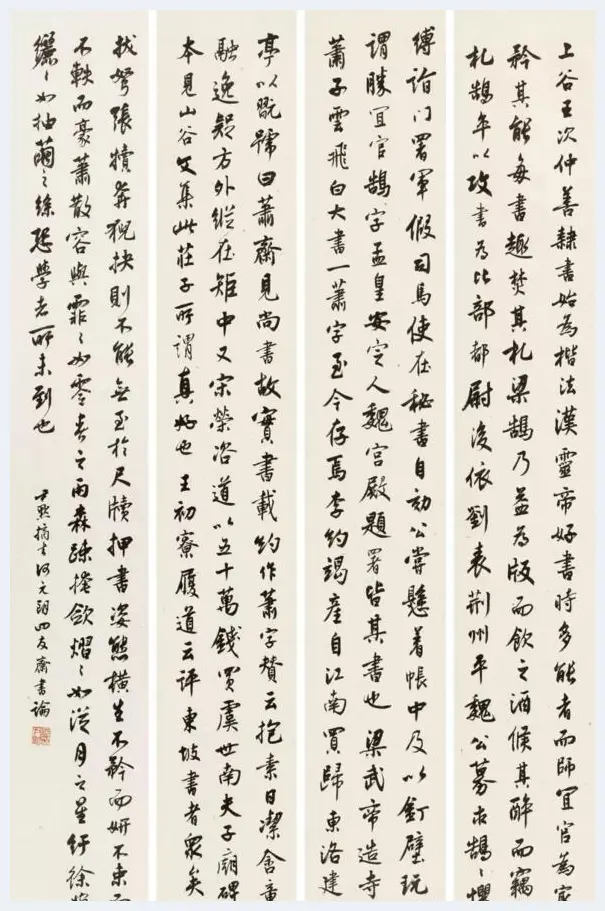 上谷王次仲善隸書始為楷法漢靈帝好書時多能者而師宜官為
矜其能每書輒焚其札梁鵠乃益為版而飲之酒候其醉而竊
札鵠卒以攻書為比部都尉後依劉表荆州平魏公募求鵠〻懼
縛詣门署軍假司馬使在秘書自効公嘗懸着帳中及以釘壁玩
謂勝宜官鵠字孟皇安定人魏宮殿題署皆其書也梁武帝造寺
蕭子雲飛白大書一蕭字至今存焉李約竭產自江南買歸東洛建
亭以翫號曰蕭齋見尚書故實書載約作蕭字賛云抱素日潔含
融逸疑方外縱在矩中又宋榮咨道以五十萬錢買虞世南夫子廟碑
本見山谷文集此莊子所謂真好也王初寮履道云評東坡書者衆矣
拔弩張犢奔猊抉則不能無至於尺牘押書姿態橫生不矜而妍不束而
不軼而豪蕭散容與霏〻如零春之雨森踈掩歛熠〻如從月之星紆徐
纚〻如抽繭之絲恐學者所未到也
摘書何元朗四友齋書論